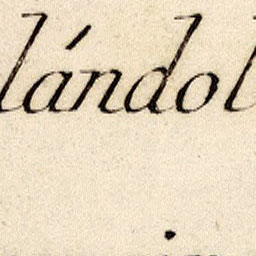 lándol